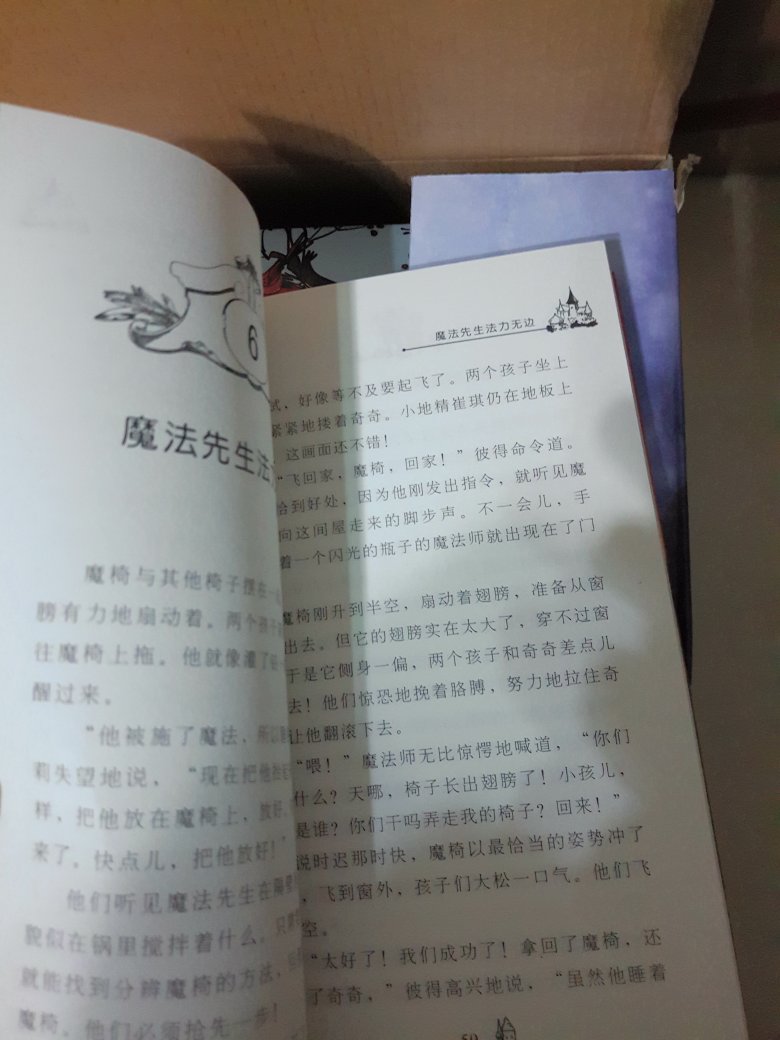 6
魔法先生法
魔椅与其他椅子摆在一
膀有力地扇动着。两个孩子
往魔椅上拖。他就像灌了
醒过来。
“他被施了魔法，所以
莉失望地说，“现在把他
样，把他放在魔椅上，放好
来了。快点儿，把他放好！”
他们听见魔法先生在隔壁
貌似在锅里搅拌着什么。只
就能找到分辨魔椅的方法，
魔椅。他们必须抢先一步！
魔法先生法力无边
试，好像等不及要起飞了。两个孩子坐上
紧紧地搂着奇奇。小地精崔琪仍在地板上
这画面还不错！
“飞回家，魔椅，回家！”彼得命令道。
恰到好处，因为他刚发出指令，就听见魔
向这间屋走来的脚步声。不一会儿，手
着一个闪光的瓶子的魔法师就出现在了门
魔椅刚升到半空，扇动着翅膀，准备从窗
出去。但它的翅膀实在太大了，穿不过窗
于是它侧身一偏，两个孩子和奇奇差点儿
去！他们惊恐地挽着胳膊，努力地拉住奇
让他翻滚下去。
“喂！”魔法师无比惊愕地喊道，“你们
什么？天哪，椅子长出翅膀了！小孩儿，
是谁？你们干吗弄走我的椅子？回来！”
说时迟那时快，魔椅以最恰当的姿势冲了
，飞到窗外，孩子们大松一口气。他们飞
空。
“太好了！我们成功了！拿回了魔椅，还
了奇奇，”彼得高兴地说，“虽然他睡着